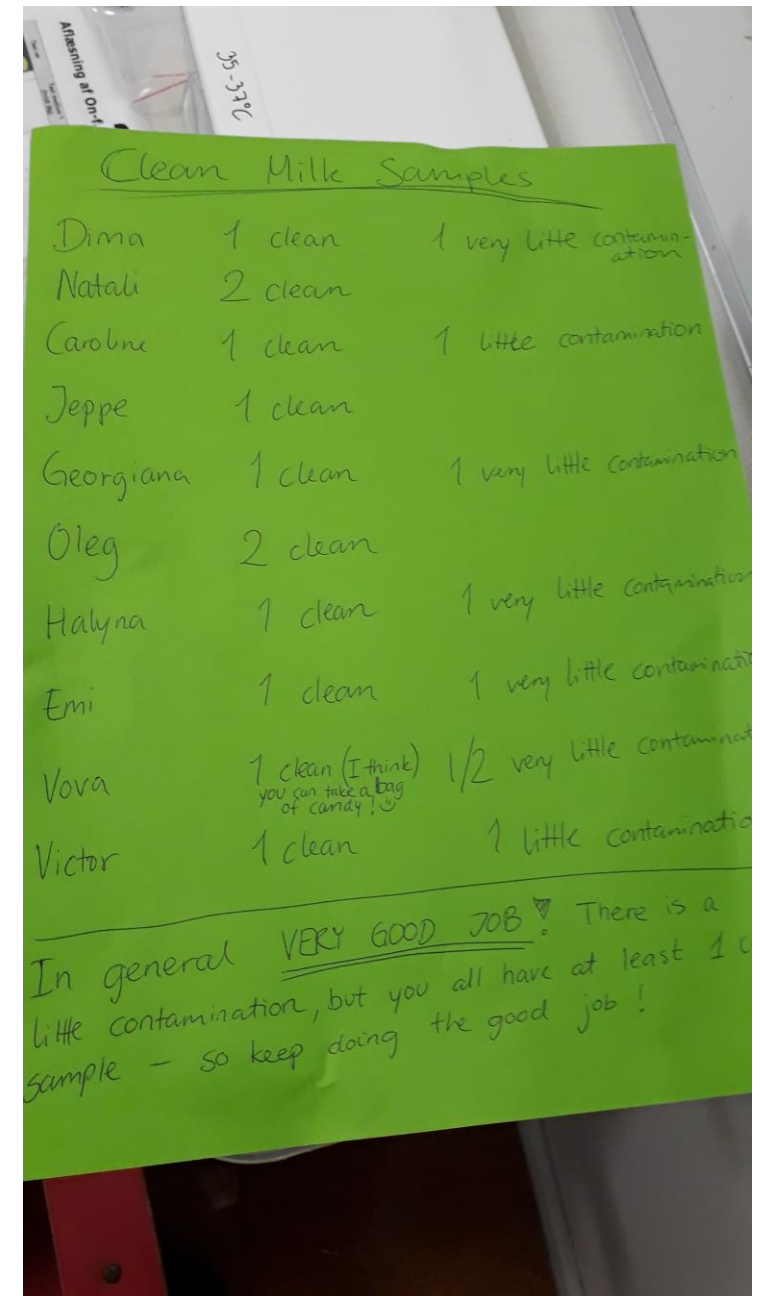 Aflæsning af On-f
35-37°C
Clean Milk Samples
Dima 1 clean 1 very little contamin-
ation
Natali 2 clean
Caroline 1 clean 1 little contamination
Jeppe 1 clean
Georgiana 1 clean 1 very little contamination
Oleg 2 clean
Halyna 1 clean 1 very little contamination
Emi 1 clean 1 very little contaminatio
Vova 1 clean (I think) 1/2 very little contaminat
you can take a bag
of candy! ☺
Victor 1 clean 1 little contaminatio
In general VERY GOOD JOB! There is a
little contamination, but you all have at least 1 c
sample – so keep doing the good job!